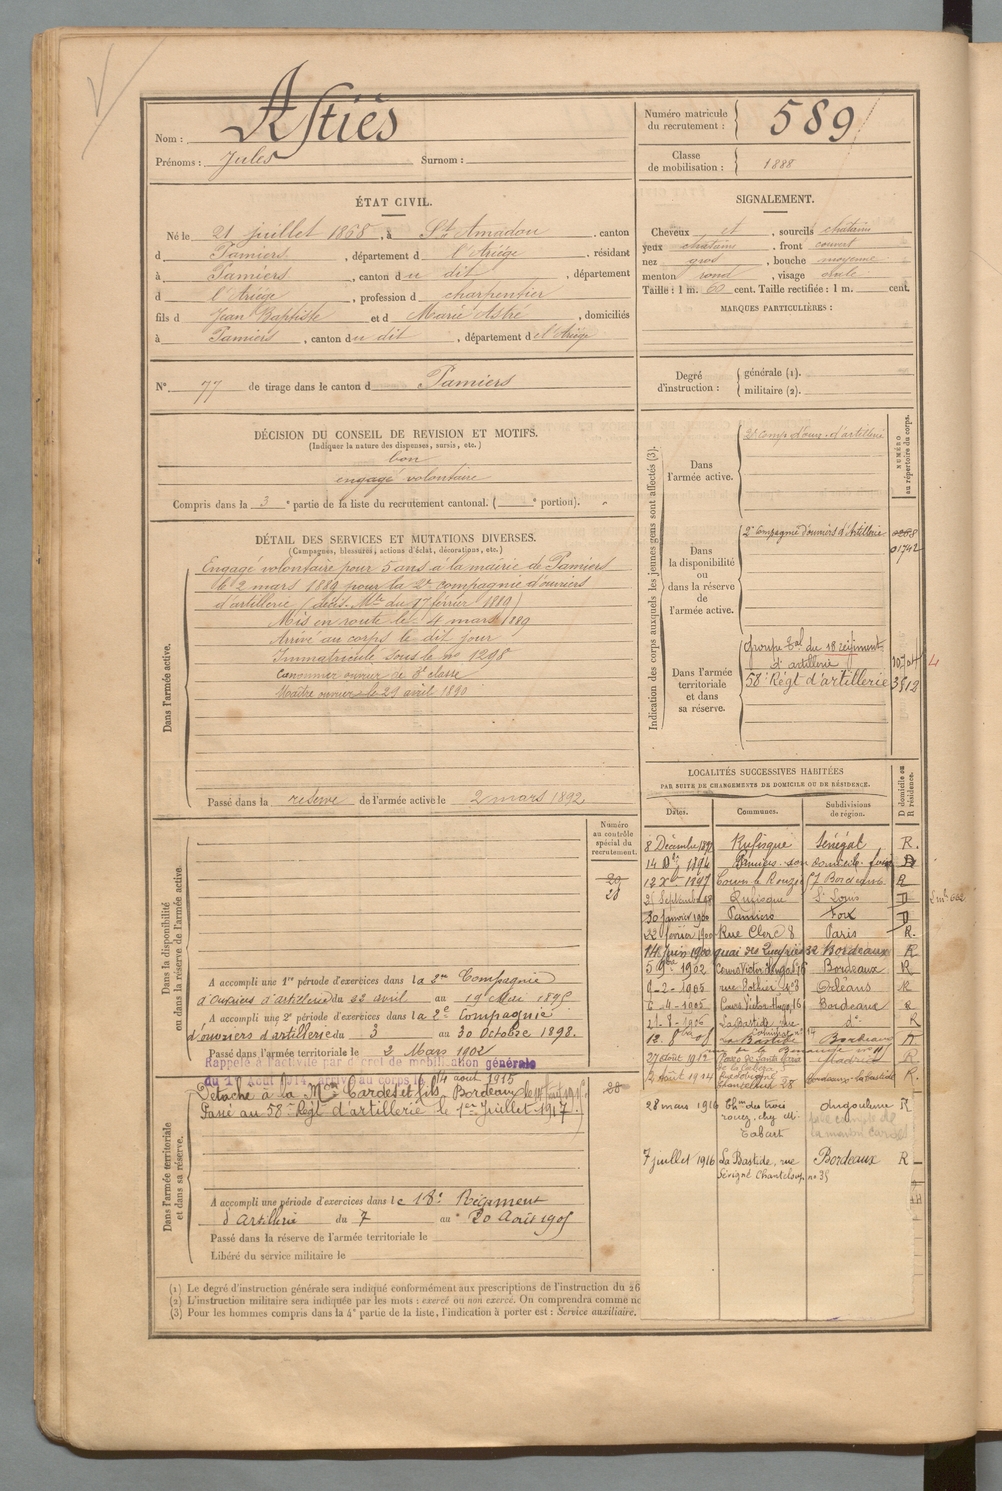 Nom : Astiès
Prénoms : Jules Surnom :
Numéro matricule du recrutement : 589
Classe de mobilisation : 1888
ÉTAT CIVIL.
Né le 21 juillet 1868, à St Amadou, canton
d Pamiers, département d l'Ariège, résidant
à Pamiers, canton du dit, département
d l'Ariège, profession d charpentier
fils d Jean Baptiste et d Marie Astre, domiciliés
à Pamiers, canton du dit, département de l'Ariège
N° 77 de tirage dans le canton d Pamiers
SIGNALEMENT.
Cheveux et, sourcils chatains
yeux chatains, front couvert
nez gros, bouche moyenne
menton rond, visage ovale
Taille : 1 m. 60 cent. Taille rectifiée : 1 m. cent.
MARQUES PARTICULIÈRES :
Degré d'instruction : générale (1).
militaire (2).
DÉCISION DU CONSEIL DE REVISION ET MOTIFS.
(Indiquer la nature des dispenses, sursis, etc.)
bon
engagé volontaire
Compris dans la 3e partie de la liste du recrutement cantonal. ( e portion).
DÉTAIL DES SERVICES ET MUTATIONS DIVERSES.
(Campagnes, blessures, actions d'éclat, décorations, etc.)
Dans l'armée active.
Engagé volontaire pour 5 ans à la mairie de Pamiers
le 2 mars 1889 pour la 2e compagnie d'ouvriers
d'artillerie (décis. Mlle du 17 février 1889)
Mis en route le 4 mars 1889
Arrivé au corps le dit jour
Immatriculé sous le no 1298
Canonnier ouvrier de 2e classe
Maître ouvrier le 21 avril 1890
Passé dans la reserve de l'armée active le 2 mars 1892
Indication des corps auxquels les jeunes gens sont affectés (3).
NUMÉRO au répertoire du corps.
Dans l'armée active.
2e comp d'ouv. d'artillerie
Dans la disponibilité ou dans la réserve de l'armée active.
2e Compagnie d'ouvriers d'Artillerie
01742
Dans l'armée territoriale et dans sa réserve.
Groupe tal du 18 régiment
d'artillerie
58e Régt d'artillerie 3512
4
Dans la disponibilité ou dans la réserve de l'armée active.
Numéro au contrôle spécial du recrutement.
20
28
A accompli une 1re période d'exercices dans la 2me Compagnie
d'ouvriers d'artillerie du 22 avril au 19 Mai 1895
A accompli une 2e période d'exercices dans la 2e Compagnie
d'ouvriers d'artillerie du 3 au 30 Octobre 1898.
Passé dans l'armée territoriale le 2 Mars 1902
Rappelé à l'activité par décret de mobilisation générale
Dans l'armée territoriale et dans sa réserve.
Détaché à la Mon Cardes et fils Bordeaux
Passé au 58e Régt d'artillerie le 1er Juillet 1917.
28
A accompli une période d'exercices dans le 18e Régiment
d'Artillerie du 7 au 20 Août 1905
Passé dans la réserve de l'armée territoriale le
Libéré du service militaire le
LOCALITÉS SUCCESSIVES HABITÉES
PAR SUITE DE CHANGEMENTS DE DOMICILE OU DE RÉSIDENCE.
Dates. Communes. Subdivisions de région. D domicile ou R résidence.
8 Décembre Rufisque Sénégal R.
14 1894 Pamiers son domicile foix D
12 Xbre 1897 Bordeaux R
Septembre 98 Rufisque St Louis
30 janvier 1900 Pamiers Foix D
22 février 1900 Rue Clerc 8 Paris R.
14 Juin 1900 quai des 32 Bordeaux R
5 9bre 1902 Cours Victor Hugo Bordeaux R
9-2-1905 rue Pothier n° 3 Orléans R
6-4-1905 Cours Victor Hugo, Bordeaux R
La Bastide, rue do R
La Bastide Bordeaux R
27 août 1912 Madrid R
2 août 1914 Bordeaux-la bastide R.
28 mars 1916 Chin des trois Angoulême R
Tabart
7 juillet 1916 La Bastide, rue Bordeaux R
Sévigné no 35
(1) Le degré d'instruction générale sera indiqué conformément aux prescriptions de l'instruction du 26
(2) L'instruction militaire sera indiquée par les mots : exercé ou non exercé. On comprendra comme
(3) Pour les hommes compris dans la 4e partie de la liste, l'indication à porter est : Service auxiliaire.